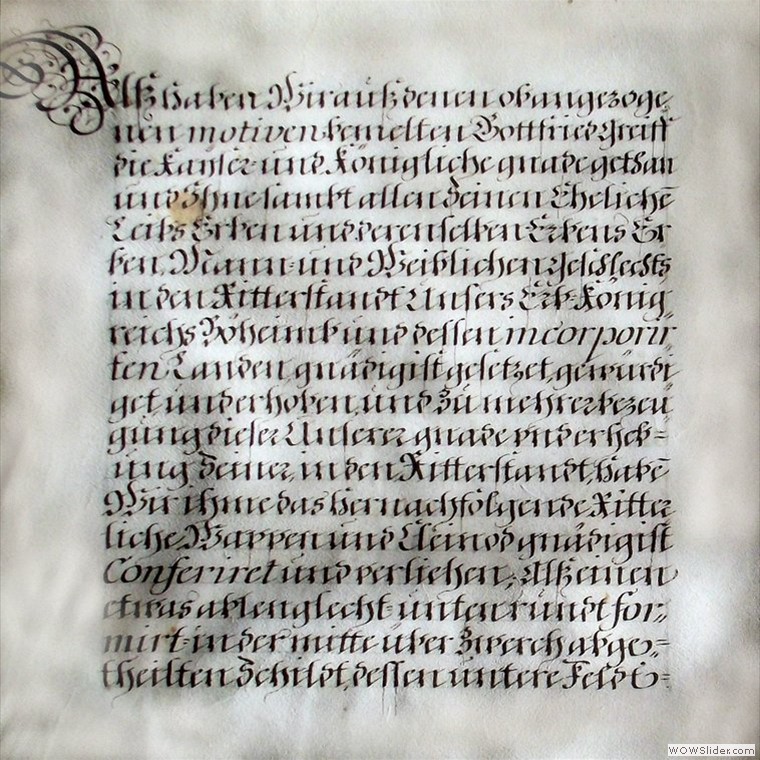 Alß haben Wir auß denen obangezoge
nen motiven bemelten Gottfried Greiff
die Kayser- und Königliche gnade gethan
und Ihne sambt allen Seinen Ehelichē
Leibs Erben und derenselben Erbens Er
ben, Mann- und Weiblichen geschlechts
in den Ritterstandt Unsers Erb-König
reichs Böheimb und dessen incorporir
ten Landen gnädigist gesetzet, gewürdi
get und erhoben, und zu mehrer bezeu
gung dieser Unserer gnade und erheb=
ung Seiner, in den Ritterstandt, habē
Wir ihme das hernachfolgende Ritter
liche Wappen und Cleinod gnädigist
Conferiret und verliehen; Alß einen
etwas ablenglecht- unten rundt for,,
mirt- in der mitte über Zwerch abge,,=
theilten Schildt, dessen untere Feldt=
WOWSlider.com